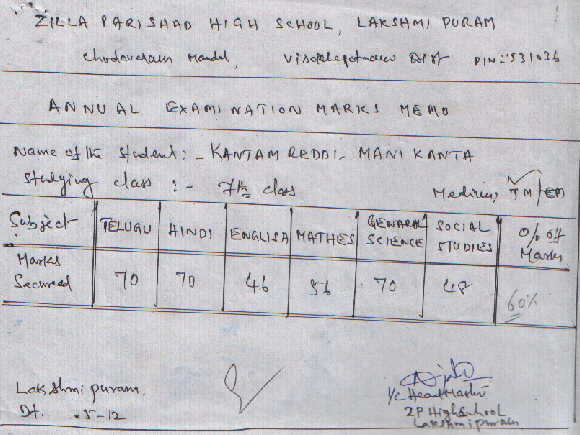 ZILLA PARISHAD HIGH SCHOOL, LAKSHMI PURAM
Chodavaram Mandal, Visakhapatnam Dist PIN:-531036
ANNUAL EXAMINATION MARKS MEMO
Name of the Student:- KANTAM REDDI- MANIKANTA
Studying class :- 7th class Medium, TM/EM
Subject TELUGU HINDI ENGLISH MATHES GENARAL SCIENCE SOCIAL STUDIES % of Marks
Marks Secured 70 70 46 56 70 60%
Lakshmipuram.
Dt. -5-12
I/c HeadMaster
ZP High School
Lakshmipuram